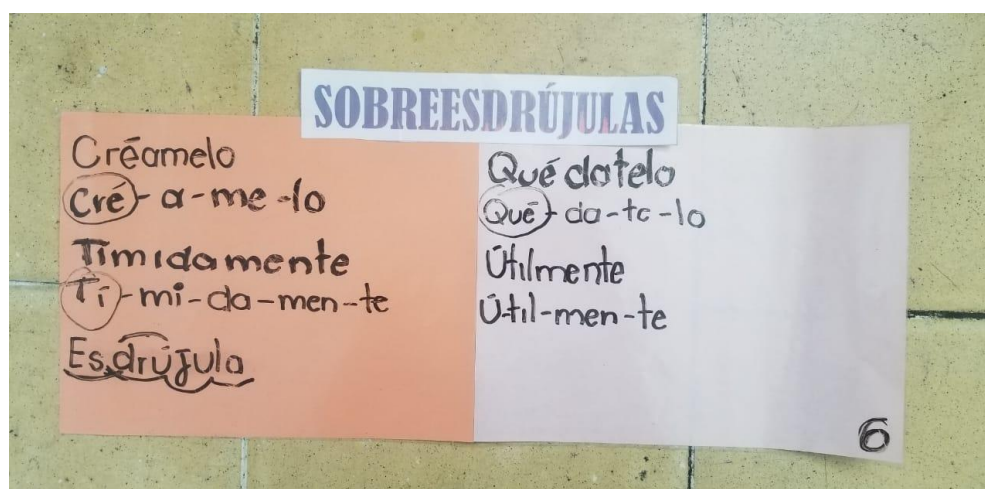 SOBREESDRÚJULAS
Créamelo
Cré-a-me-lo
Tímidamente
Tí-mi-da-men-te
Esdrújula
Quédatelo
Qué-da-te-lo
Útilmente
Ú-til-men-te
6